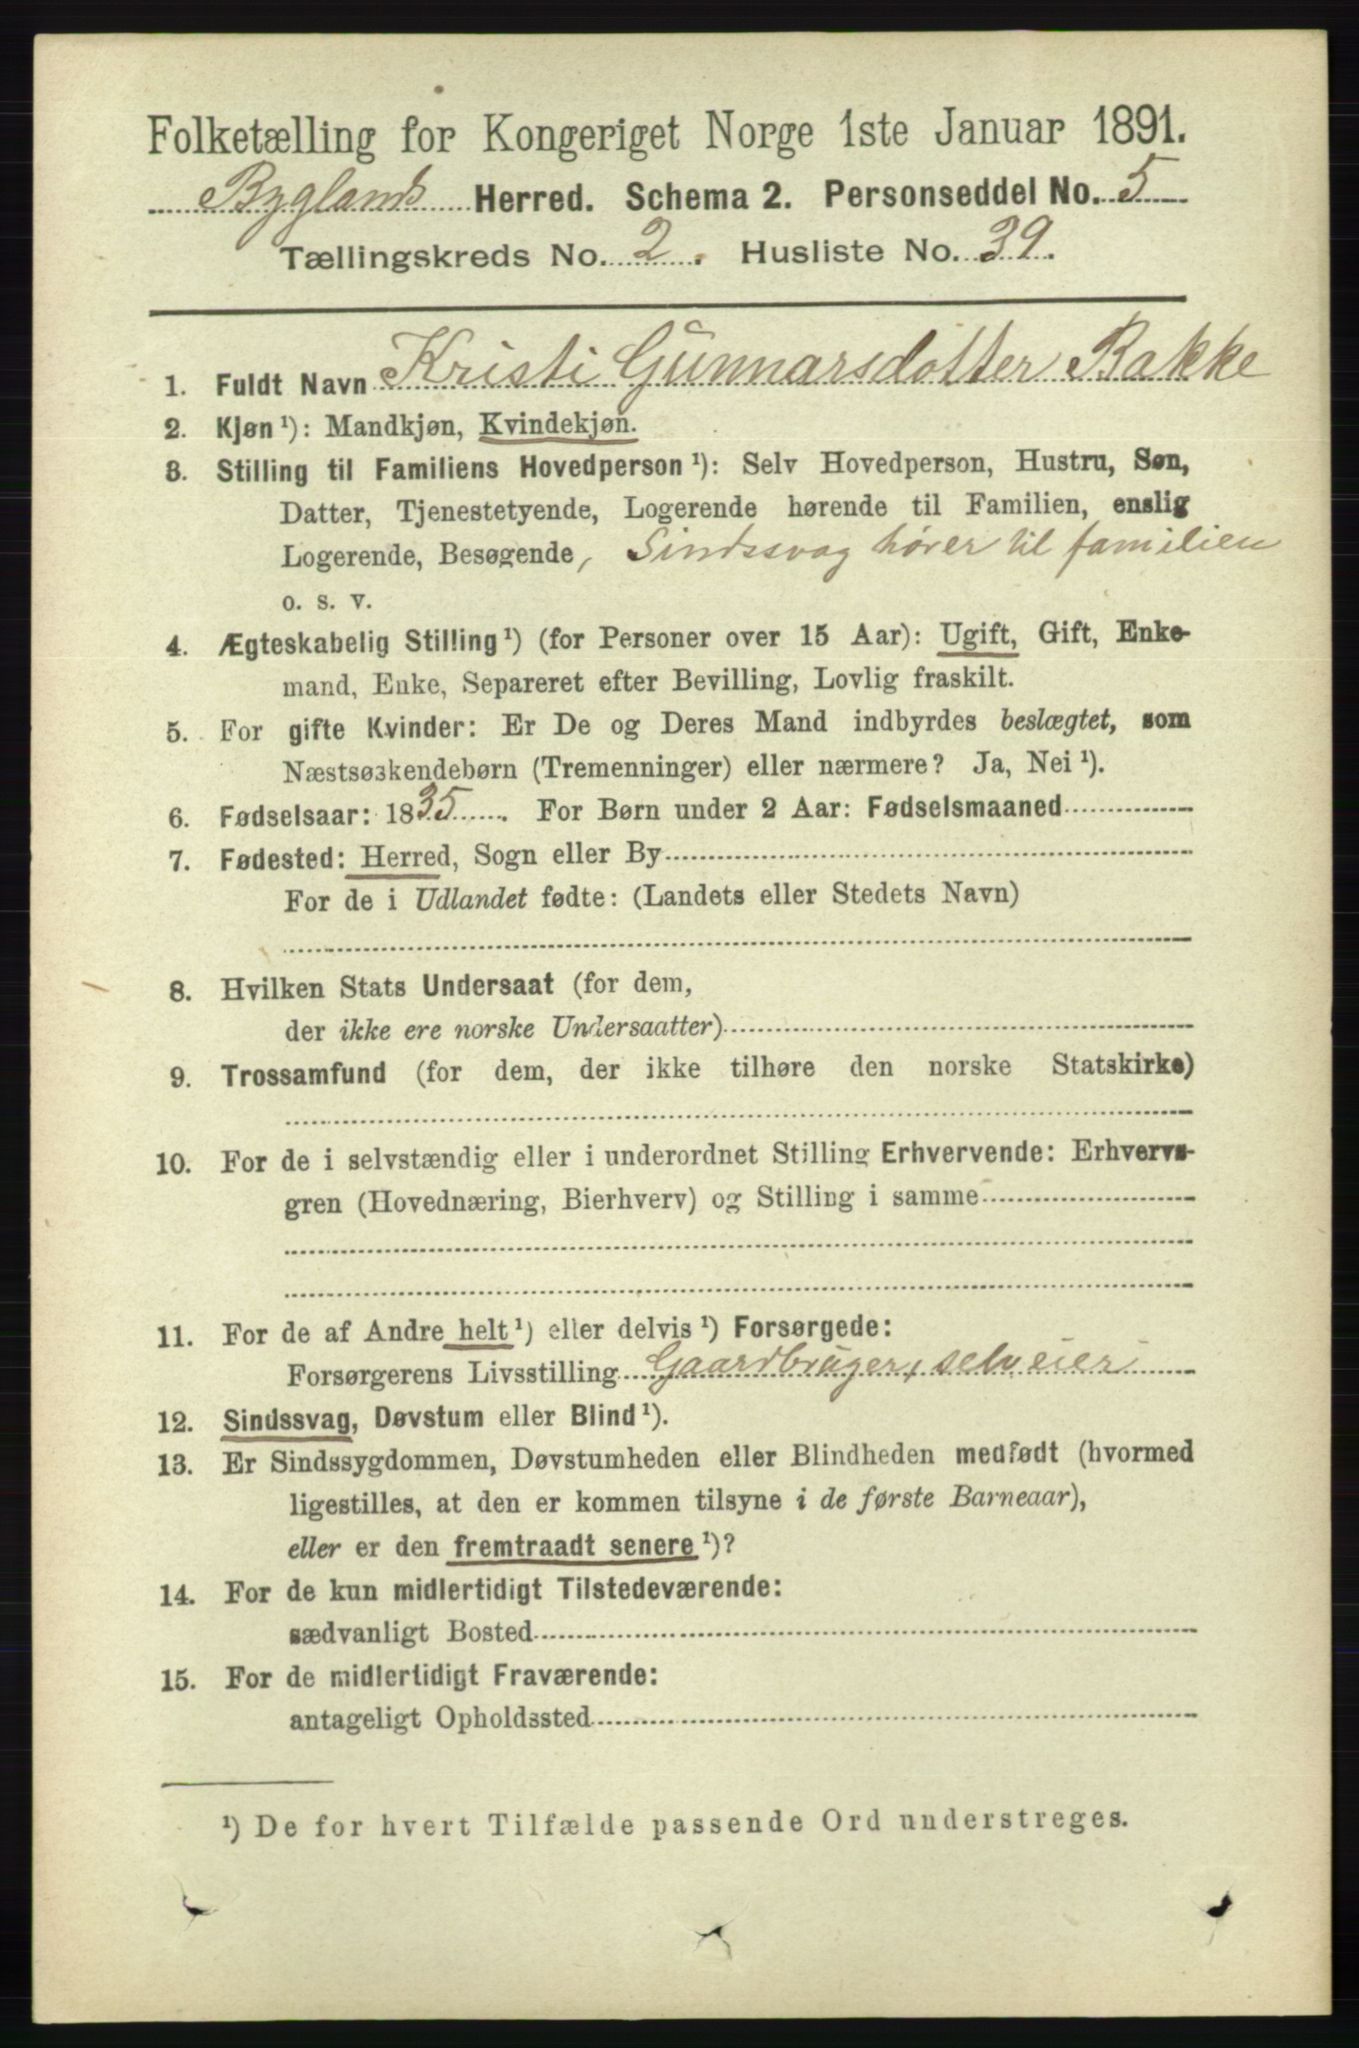 Folketælling for Kongeriget Norge 1ste Januar 1891.
Byglands Herred. Schema 2. Personseddel No. 5
Tællingskreds No. 2. Husliste No. 39.
1. Fuldt Navn Kristi Gunnarsdotter Bakke
2. Kjøn ¹): Mandkjøn, Kvindekjøn.
3. Stilling til Familiens Hovedperson ¹): Selv Hovedperson, Hustru, Søn,
Datter, Tjenestetyende, Logerende hørende til Familien, enslig
Logerende, Besøgende, Sindssvag hører til familien
o. s. v.
4. Ægteskabelig Stilling ¹) (for Personer over 15 Aar): Ugift, Gift, Enke-
mand, Enke, Separeret efter Bevilling, Lovlig fraskilt.
5. For gifte Kvinder: Er De og Deres Mand indbyrdes beslægtet, som
Næstsøskendebørn (Tremenninger) eller nærmere? Ja, Nei ¹).
6. Fødselsaar: 1835. For Børn under 2 Aar: Fødselsmaaned
7. Fødested: Herred, Sogn eller By
For de i Udlandet fødte: (Landets eller Stedets Navn)
8. Hvilken Stats Undersaat (for dem,
der ikke ere norske Undersaatter)
9. Trossamfund (for dem, der ikke tilhøre den norske Statskirke)
10. For de i selvstændig eller i underordnet Stilling Erhvervende: Erhvervs-
gren (Hovednæring, Bierhverv) og Stilling i samme
11. For de af Andre helt ¹) eller delvis ¹) Forsørgede:
Forsørgerens Livsstilling Gaardbruger, selveier
12. Sindssvag, Døvstum eller Blind ¹).
13. Er Sindssygdommen, Døvstumheden eller Blindheden medfødt (hvormed
ligestilles, at den er kommen tilsyne i de første Barneaar),
eller er den fremtraadt senere ¹)?
14. For de kun midlertidigt Tilstedeværende:
sædvanligt Bosted
15. For de midlertidigt Fraværende:
antageligt Opholdssted
¹) De for hvert Tilfælde passende Ord understreges.